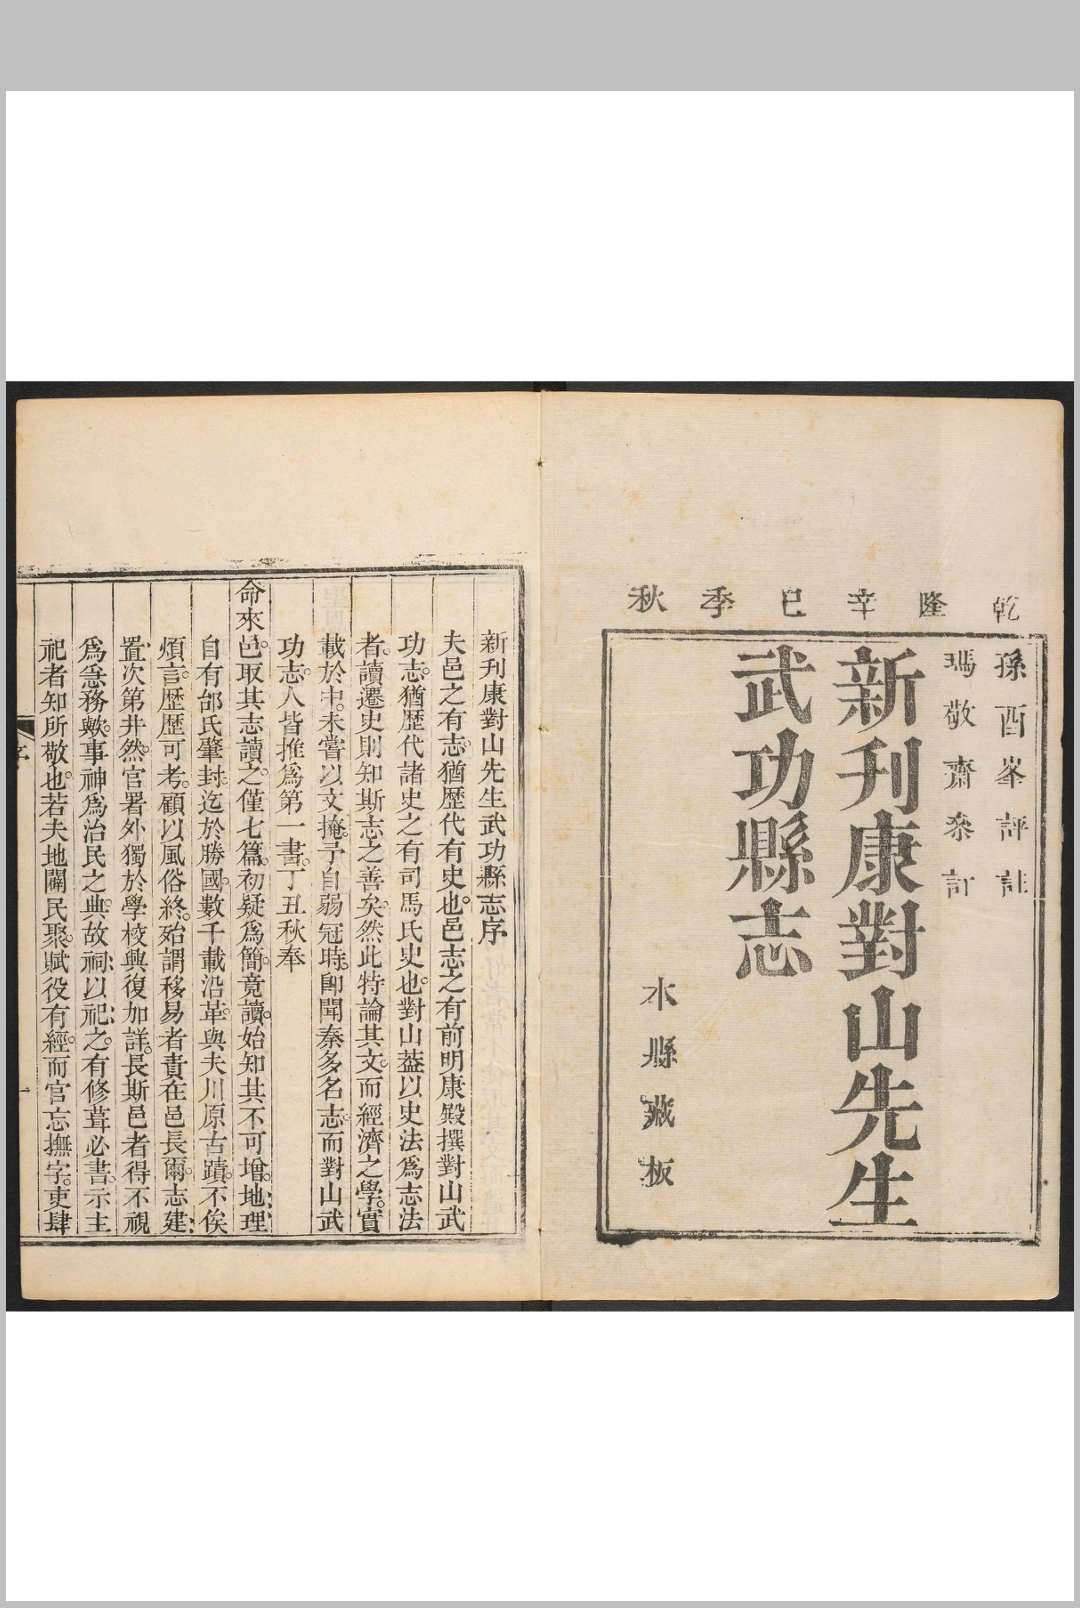 乾隆辛巳季秋
孫酉峯評註
瑪敬齋叅訂
新刊康對山先生
武功縣志
本縣藏板
新刊康對山先生武功縣志序
夫邑之有志。猶歷代有史也。邑志之有前明康殿撰對山武
功志。猶歷代諸史之有司馬氏史也。對山葢以史法爲志法
者。讀遷史則知斯志之善矣。然此特論其文。而經濟之學。實
載於中。未嘗以文掩。予自弱冠時。卽聞秦多名志。而對山武
功志。人皆推爲第一書。丁丑秋奉
命來邑。取其志讀之。僅七篇。初疑爲簡。竟讀。始知其不可增。地理
自有邰氏肇封。迄於勝國。數千載沿革。與夫川原古蹟。不俟
煩言。歷歷可考。顧以風俗終。殆謂移易者責在邑長爾。志建
置次第井然。官署外獨於學校興復加詳。長斯邑者得不視
爲急務歟。事神爲治民之典。故祠以祀之。有修葺必書。示主
祀者知所敬也。若夫地闢民聚。賦役有經。而官忘撫字。吏肆
序
一